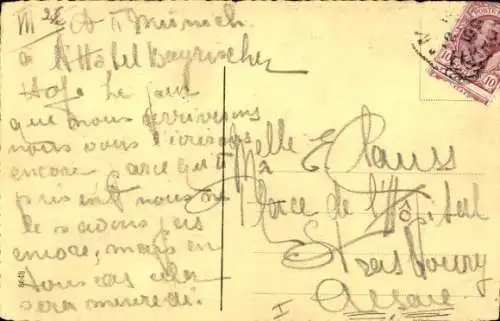 à Munich
à l'Hôtel Bayrischer
Hof. Le jour
que nous arriverons
nous vous l'écrirons
encore, parce qu'à
présent nous ne
le savons pas
encore, mais en
tous cas cela
sera mercredi.
Melle E Clauss
Place de l'Hôpital
Strasbourg
Alsace
I
10
10